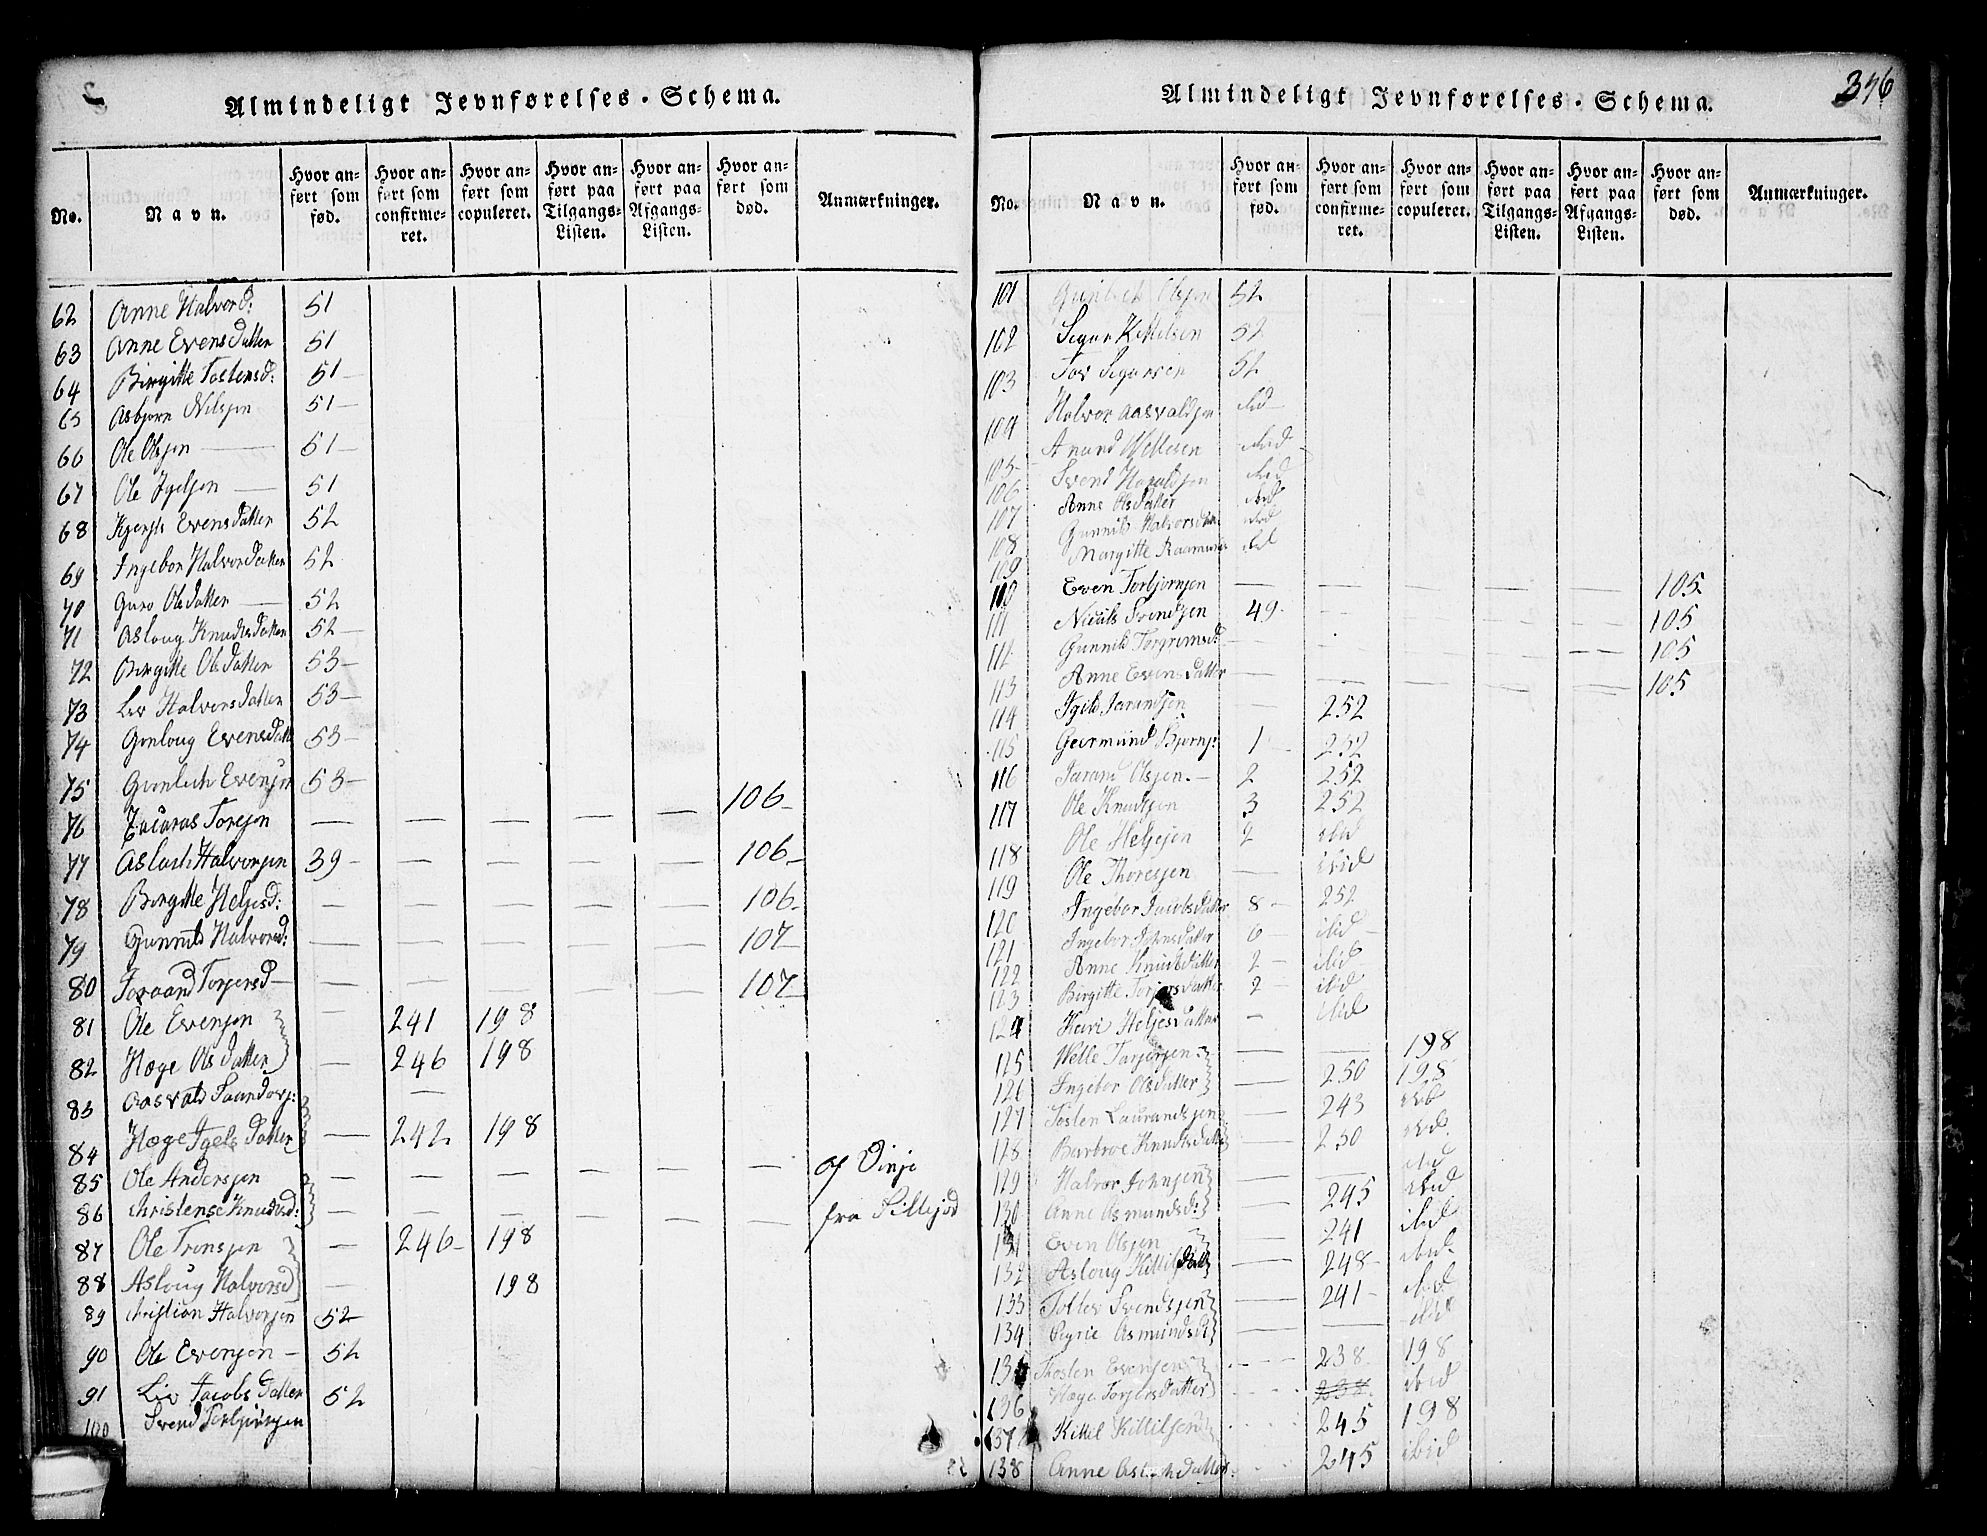 Almindeligt Jevnførelses-Schema.
No. Navn. Hvor anført som fød. Hvor anført som confirmeret. Hvor anført som copuleret. Hvor anført paa Tilgangs-Listen. Hvor anført paa Afgangs-Listen. Hvor anført som død. Anmærkninger.
62 Anne Halvord: 51
63 Anne Evensdatter 51
64 Birgitte Tostensd: 51 —
65 Asbjørn Nilsjen 51 —
66 Ole Olsjen — 51 —
67 Ole Igelsjen — 51
68 Evensdatter 52
69 Ingebor Halvordatter 52
70 Guro Olsdatter — 52
71 Asloug Knudtsdatter 52 —
72 Birgitte Olsdatter 53 —
73 Liv Halvorsdatter 53 —
74 Gonloug Evensdatt 53 —
75 Gunlech Evensjn 53 —
76 Zacarias Torsjon — — — — — 106 —
77 Aslach Halvorsjen 39 — — — — — 106 —
78 Birgitte Heljesd: — — — — — 106 —
79 Gunnild Halvorsd: — — — — — 107 —
80 Torjersd — — — — — — 107 —
81 Ole Evensjon — 241 198
82 Hæge Olsdatter — 246 198
83 Aasvald —
84 Hæge Igelsdatter — 242 198
85 Ole Andersjen — — — — — — af Vinje
86 Christense Knudtsd: — — — — — — fra Sillejod
87 Ole Tronsjen — 246 — 198
88 Asloug Halvorsd — 198
89 Christian Halvorsjen 52
90 Ole Evensjon — 52
91 Liv Jacobsdatter 52
100 Svend Torbjørnsjen
346
Almindeligt Jevnførelses-Schema.
No. Navn. Hvor anført som fød. Hvor anført som confirmeret. Hvor anført som copuleret. Hvor anført paa Tilgangs-Listen. Hvor anført paa Afgangs-Listen. Hvor anført som død. Anmærkninger.
101 Gunlech Olsjen 52
102 Sigur Kittelsen 52
103 Tov Sigursen 52
104 Halvor Aasvaldsjen ibid
105 Anund ibid
106 Svend Haraldsjon ibid
107 Anne Olsdatter ibid
108 Gunnild Halvorsdatt ibid
109 Margitte ibid
110 Even Torbjørnsjen — — — — — 105
111 Niculs Svendsjen 49 — — 105
112 Gunnild Torgrimsd: — — — — — 105
113 Anne Evensdatter — — — — — 105
114 Igild Jarandsjen — 252
115 Geirmund Bjørnsj: 1 — 252
116 Jarand Olsjen — 2 252
117 Ole Knudsjon 3 252
118 Ole Heljesjen 2 ibid
119 Ole Thoresjen — ibid
120 Ingebor Jacobsdatter 8 — 252
121 Ingebor Johnsdatter 6 — ibid —
122 Anne Knudtsdatter 2 — ibid
123 Birgitte Torjersdatter 2 — ibid
124 Heljesdatter — ibid
125 Welle Tarjersjen — — 198
126 Ingebor Olsdatter — 250 198
127 Tosten Laurandsjen — 243 ibid
128 Barbroe Knudtsdatt — 250 ibid
129 Halvor Johnsjen — — ibid
130 Anne Asmundsd: — 245 ibid
131 Even Olsjen — 241 ibid
132 Asloug Kittilsdatt — 248 — ibid
133 Tollev Svendsjen — 241 — ibid
134 Asmundsd — — ibid
135 Thosten Evensjen — 238 198
136 Hæge Torjersdatter 238 ibid
137 Kittel Kittilsen 245 198
138 Anne Aslachsdatter 245 ibid